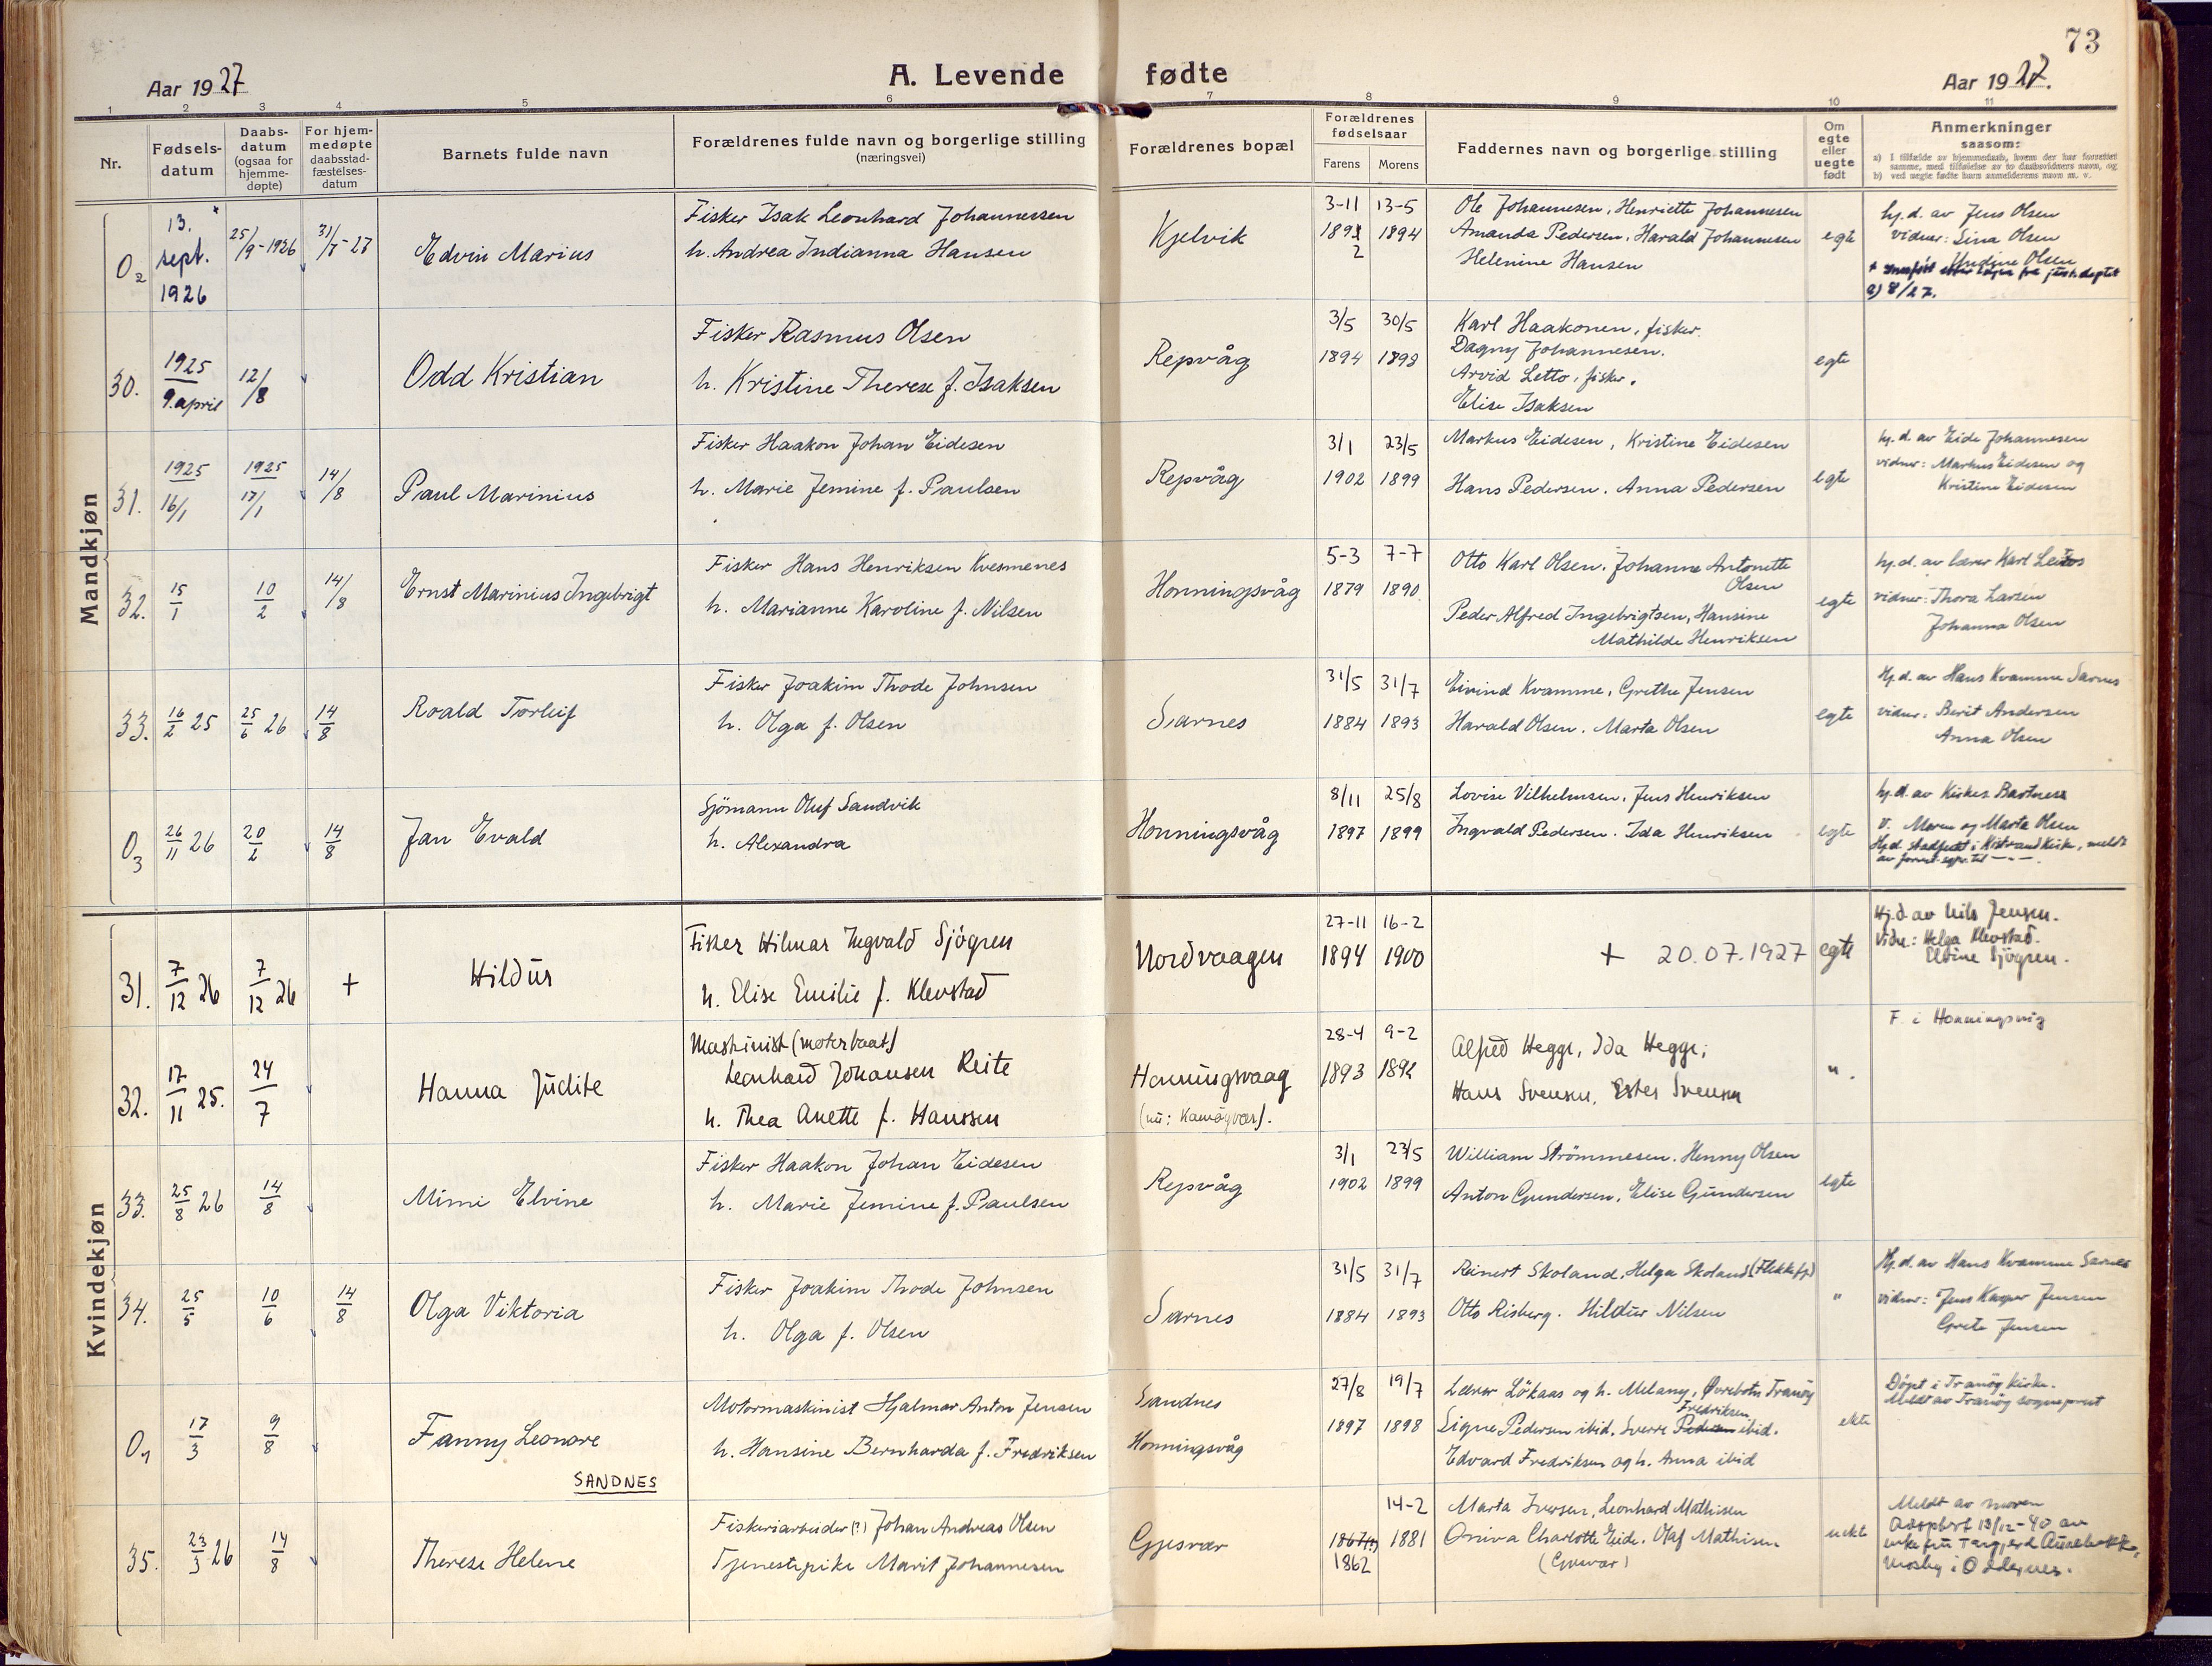 73
Aar 1927
A. Levende fødte
Aar 1927.
1 2 3 4 5 6 7 8 9 10 11
Nr.
Fødsels-
datum
Daabs-
datum
(ogsaa for
hjemme-
døpte)
For hjem-
medøpte
daabsstad-
fæstelses-
datum
Barnets fulde navn
Forældrenes fulde navn og borgerlige stilling
(næringsvei)
Forældrenes bopæl
Forældrenes
fødselsaar
Farens Morens
Faddernes navn og borgerlige stilling
Om
egte
eller
uegte
født
Anmerkninger
saasom:
a) I tilfælde av hjemmedaab, hvem der har forrettet
samme, med tilføielse av to daabsvidners navn, og
b) ved uegte fødte barn anmelderens navn m. v.
Mandkjøn
O2
13. +
sept.
1926
25/9-1926
31/7-27
Edvin Marius
Fisker Isak Leonhard Johannessen
h. Andrea Indianna Hansen
Kjelvik
3-11 13-5
1891 1894
2
Ole Johannesen, Henriette Johannesen
Amanda Pedersen, Harald Johannesen
Helenine Hansen
egte
hj.d. av Jens Olsen
vidner: Lina Olsen
Undine Olsen
8/27.
30.
1925
9. april
12/8
Odd Kristian
Fisker Rasmus Olsen
h. Kristine Therese f. Isaksen
Repvåg
3/5 30/5
1894 1898
Karl Haakonen, fisker.
Dagny Johannesen.
Arvid Letto, fisker.
Elise Isaksen
egte
31.
1925
16/1
1925
17/1
14/8
Paul Marinius
Fisker Haakon Johan Eidesen
h. Marie Jemine f. Paulsen
Repvåg
3/1 23/5
1902 1899
Markus Eidesen, Kristine Eidesen
Hans Pedersen. Anna Pedersen
egte
hj.d. av Eide Johannesen
vidner: Markus Eidesen og
Kristine Eidesen
32.
15/1
10/2
14/8
Ernst Marinius Ingebrigt
Fisker Hans Henriksen Kvesmenes
h. Marianne Karoline f. Nilsen
Honningsvåg
5-3 7-7
1879 1890
Otto Karl Olsen. Johanne Antonette
Olsen
Peder Alfred Ingebrigtsen, Hansine
Mathilde Henriksen
egte
hj.d. av lærer Karl Leitos
vidner: Thora Larsen
Johanna Olsen
33.
16/2 25
25/6 26
14/8
Roald Torleif
Fisker Joakim Thode Johnsen
h. Olga f. Olsen
Sarnes
31/5 31/7
1884 1893
Eivind Kvamme, Grethe Jensen
Harald Olsen. Marta Olsen
egte
Hj.d. av Hans Kvamme Sarnes
vidner: Berit Andersen
Anna Olsen
O3
26/11 26
20/2
14/8
Jan Evald
Sjömann Oluf Sandvik
h. Alexandra
Honningsvåg
8/11 25/8
1897 1899
Lovise Vilhelmsen, Jens Henriksen
Ingvald Pedersen. Ida Henriksen
egte
hj.d. av Kirkes. Bartnes
v. Maren og Marta Olsen
Hj.d. stadfestet i Kistrand Kirke, meldt
Kvindekjøn
31.
7/12 26
7/12 26
+
Hildur
Fisker Hilmar Ingvald Sjögren
h. Elise Emilie f. Klevstad
Nordvaagen
27-11 16-2
1894 1900
+ 20.07.1927
egte
Hj.d av Nils Jensen.
Vidn.: Helga Klevstad.
Eldine Sjögren.
32.
17/11 25.
24/7
Hanna Judite
Maskinist (motorbaat)
Leonhard Johansen Reite
h. Thea Anette f. Hanssen
Honningsvaag
(nu: Kamöyvær).
28-4 9-2
1893 1892
Alfred Hegge, Ida Hegge;
Hans Svensen, Ester Svensen
".
F. i Honningsvåg
33.
25/8 26
14/8
Mimi Elvine
Fisker Haakon Johan Eidesen
h. Marie Jemine f. Paulsen
Repvåg
3/1 23/5
1902 1899
William Strömmesen. Henny Olsen
Anton Gundersen, Elise Gundersen
egte
34.
25/5
10/6
14/8
Olga Viktoria
Fisker Joakim Thode Johnsen
h. Olga f. Olsen
Sarnes
31/5 31/7
1884 1893
Reinert Skoland, Helga Skoland (Flekkefj)
Otto Risberg. Hildur Nilsen
"
Hj.d. av Hans Kvamme Sarnes
vidner: Jens Kasper Jensen
Grete Jensen
O1
17/3
9/8
Fanny Leonore
SANDNES
Motormaskinist Hjalmar Anton Jensen
h. Hansine Bernharda f. Fredriksen
Sandnes
Honningsvåg
27/8 19/7
1897 1898
Lærer Lökaas og h. Melany, Övrebotn Tranöy
Fredriksen
Signe Pedersen ibid. Sverre Pedersen ibid.
Edvard Fredriksen og h. Anna ibid
ekte
Döpt i Tranöy kirke.
Meldt av Tranöy sogneprest
35.
23/3 26
14/8
Therese Helene
Fiskeriarbeider (?) Johan Andreas Olsen
Tjenestepike Marit Johannesen
Gjesvær
14-2
1867(?) 1881
1862
Marta Iversen, Leonhard Mathisen
Oniva Charlotte Eide. Olaf Mathisen
(Gjesvær)
uekte
Meldt av moren
Adoptert 13/12-40 av
enke fru Torgjerd
Mosby i Oddernes.